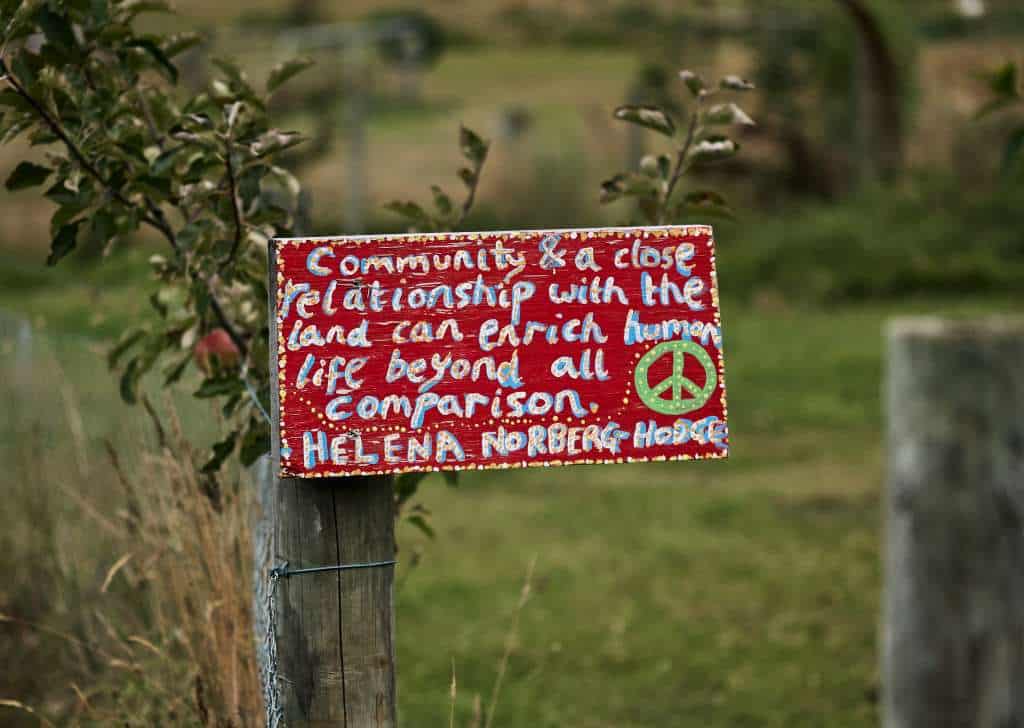 Community & a close
relationship with the
land can enrich human
life beyond all
comparison.
HELENA NORBERG-HODGE